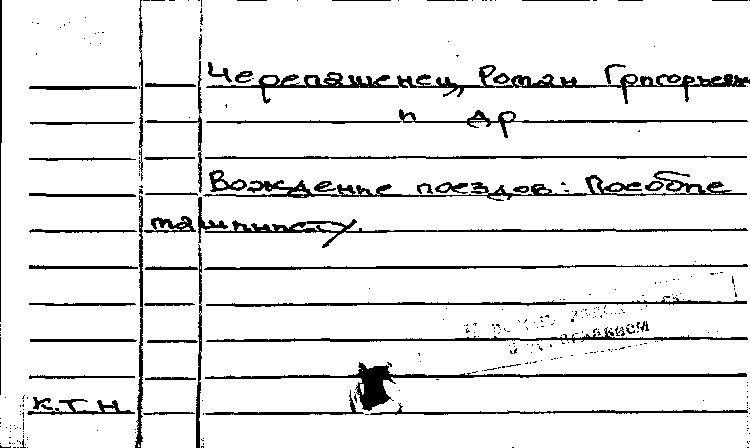 Черепашенец, Роман Григорьевич
и др
Вождение поездов: Пособие
машинисту.
К.Т.Н.